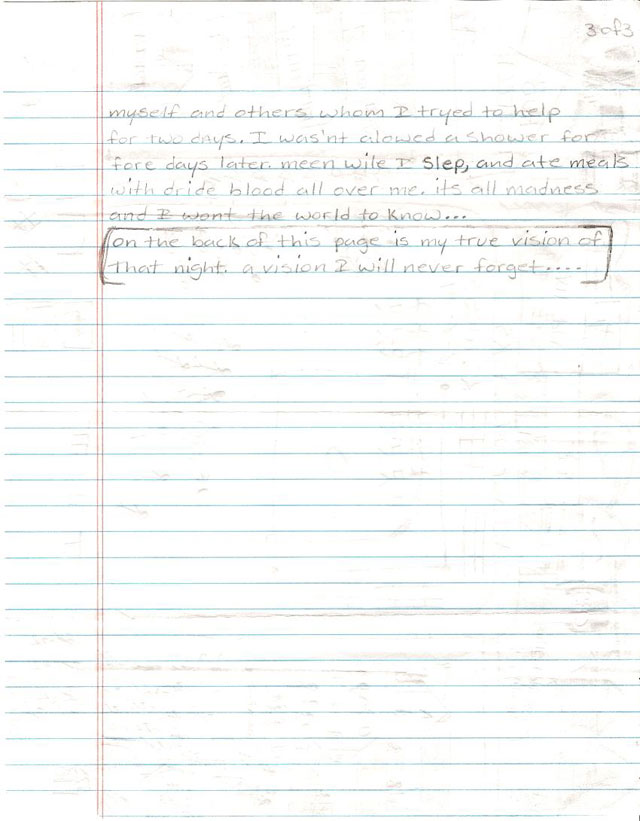 3 of 3
myself and others whom I tryed to help
for two days. I was'nt alowed a shower for
fore days later. meen wile I Slep, and ate meals
with dride blood all over me. its all madness
and I wont the world to know...
on the back of this page is my true vision of
that night. a vision I will never forget....